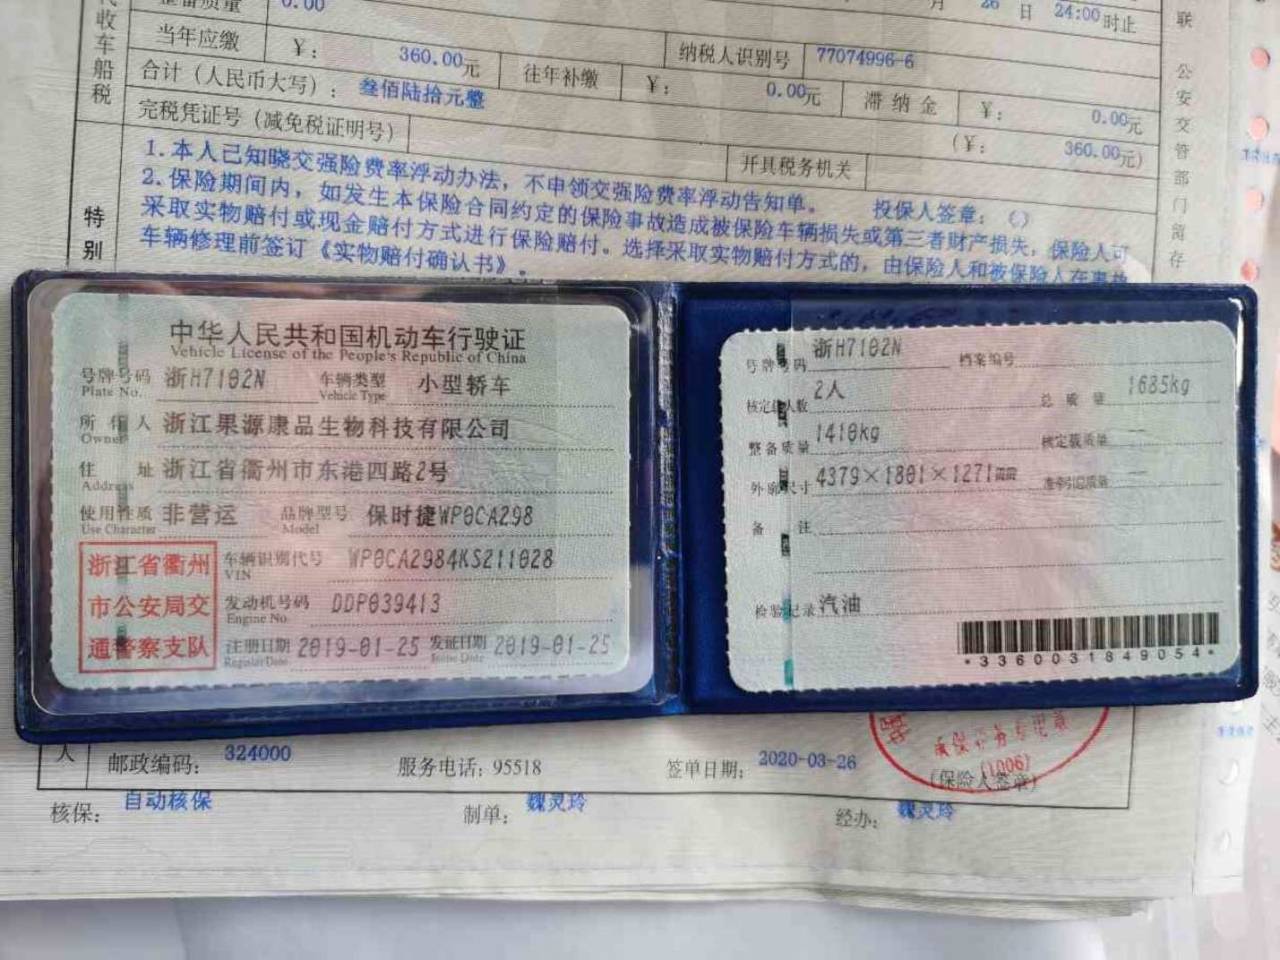 代收车船税
整备质量 0.00
月 26 日 24:00 时止
联 公安交管部门留存
当年应缴 ￥: 360.00元 往年补缴 ￥: 0.00元 滞纳金 ￥: 0.00元
纳税人识别号 77074996-6
合计（人民币大写）: 叁佰陆拾元整 (￥: 360.00元)
完税凭证号（减免税证明号） 开具税务机关
特别
1.本人已知晓交强险费率浮动办法，不申领交强险费率浮动告知单。 投保人签章：（）
2.保险期间内，如发生本保险合同约定的保险事故造成被保险车辆损失或第三者财产损失，保险人可
采取实物赔付或现金赔付方式进行保险赔付。选择采取实物赔付方式的，由保险人和被保险人在事故
车辆修理前签订《实物赔付确认书》。
中华人民共和国机动车行驶证
Vehicle License of the People's Republic of China
号牌号码 浙H7102N 车辆类型 小型轿车
Plate No. Vehicle Type
所有人 浙江果源康品生物科技有限公司
Owner
住址 浙江省衢州市东港四路2号
Address
使用性质 非营运 品牌型号 保时捷WP0CA298
Use Character Model
浙江省衢州市公安局交通警察支队
车辆识别代号 WP0CA2984KS211028
VIN
发动机号码 DDP039413
Engine No.
注册日期 2019-01-25 发证日期 2019-01-25
Register Date Issue Date
号牌号码 浙H7102N 档案编号
核定载人数 2人 总质量 1685kg
整备质量 1410kg 核定载质量
外廓尺寸 4379×1801×1271mm 准牵引总质量
备注
检验记录 汽油
*3360031849054*
人 邮政编码: 324000 服务电话: 95518 签单日期: 2020-03-26 (保险人签章)
承保业务专用章
(1006)
核保: 自动核保 制单: 魏灵玲 经办: 魏灵玲